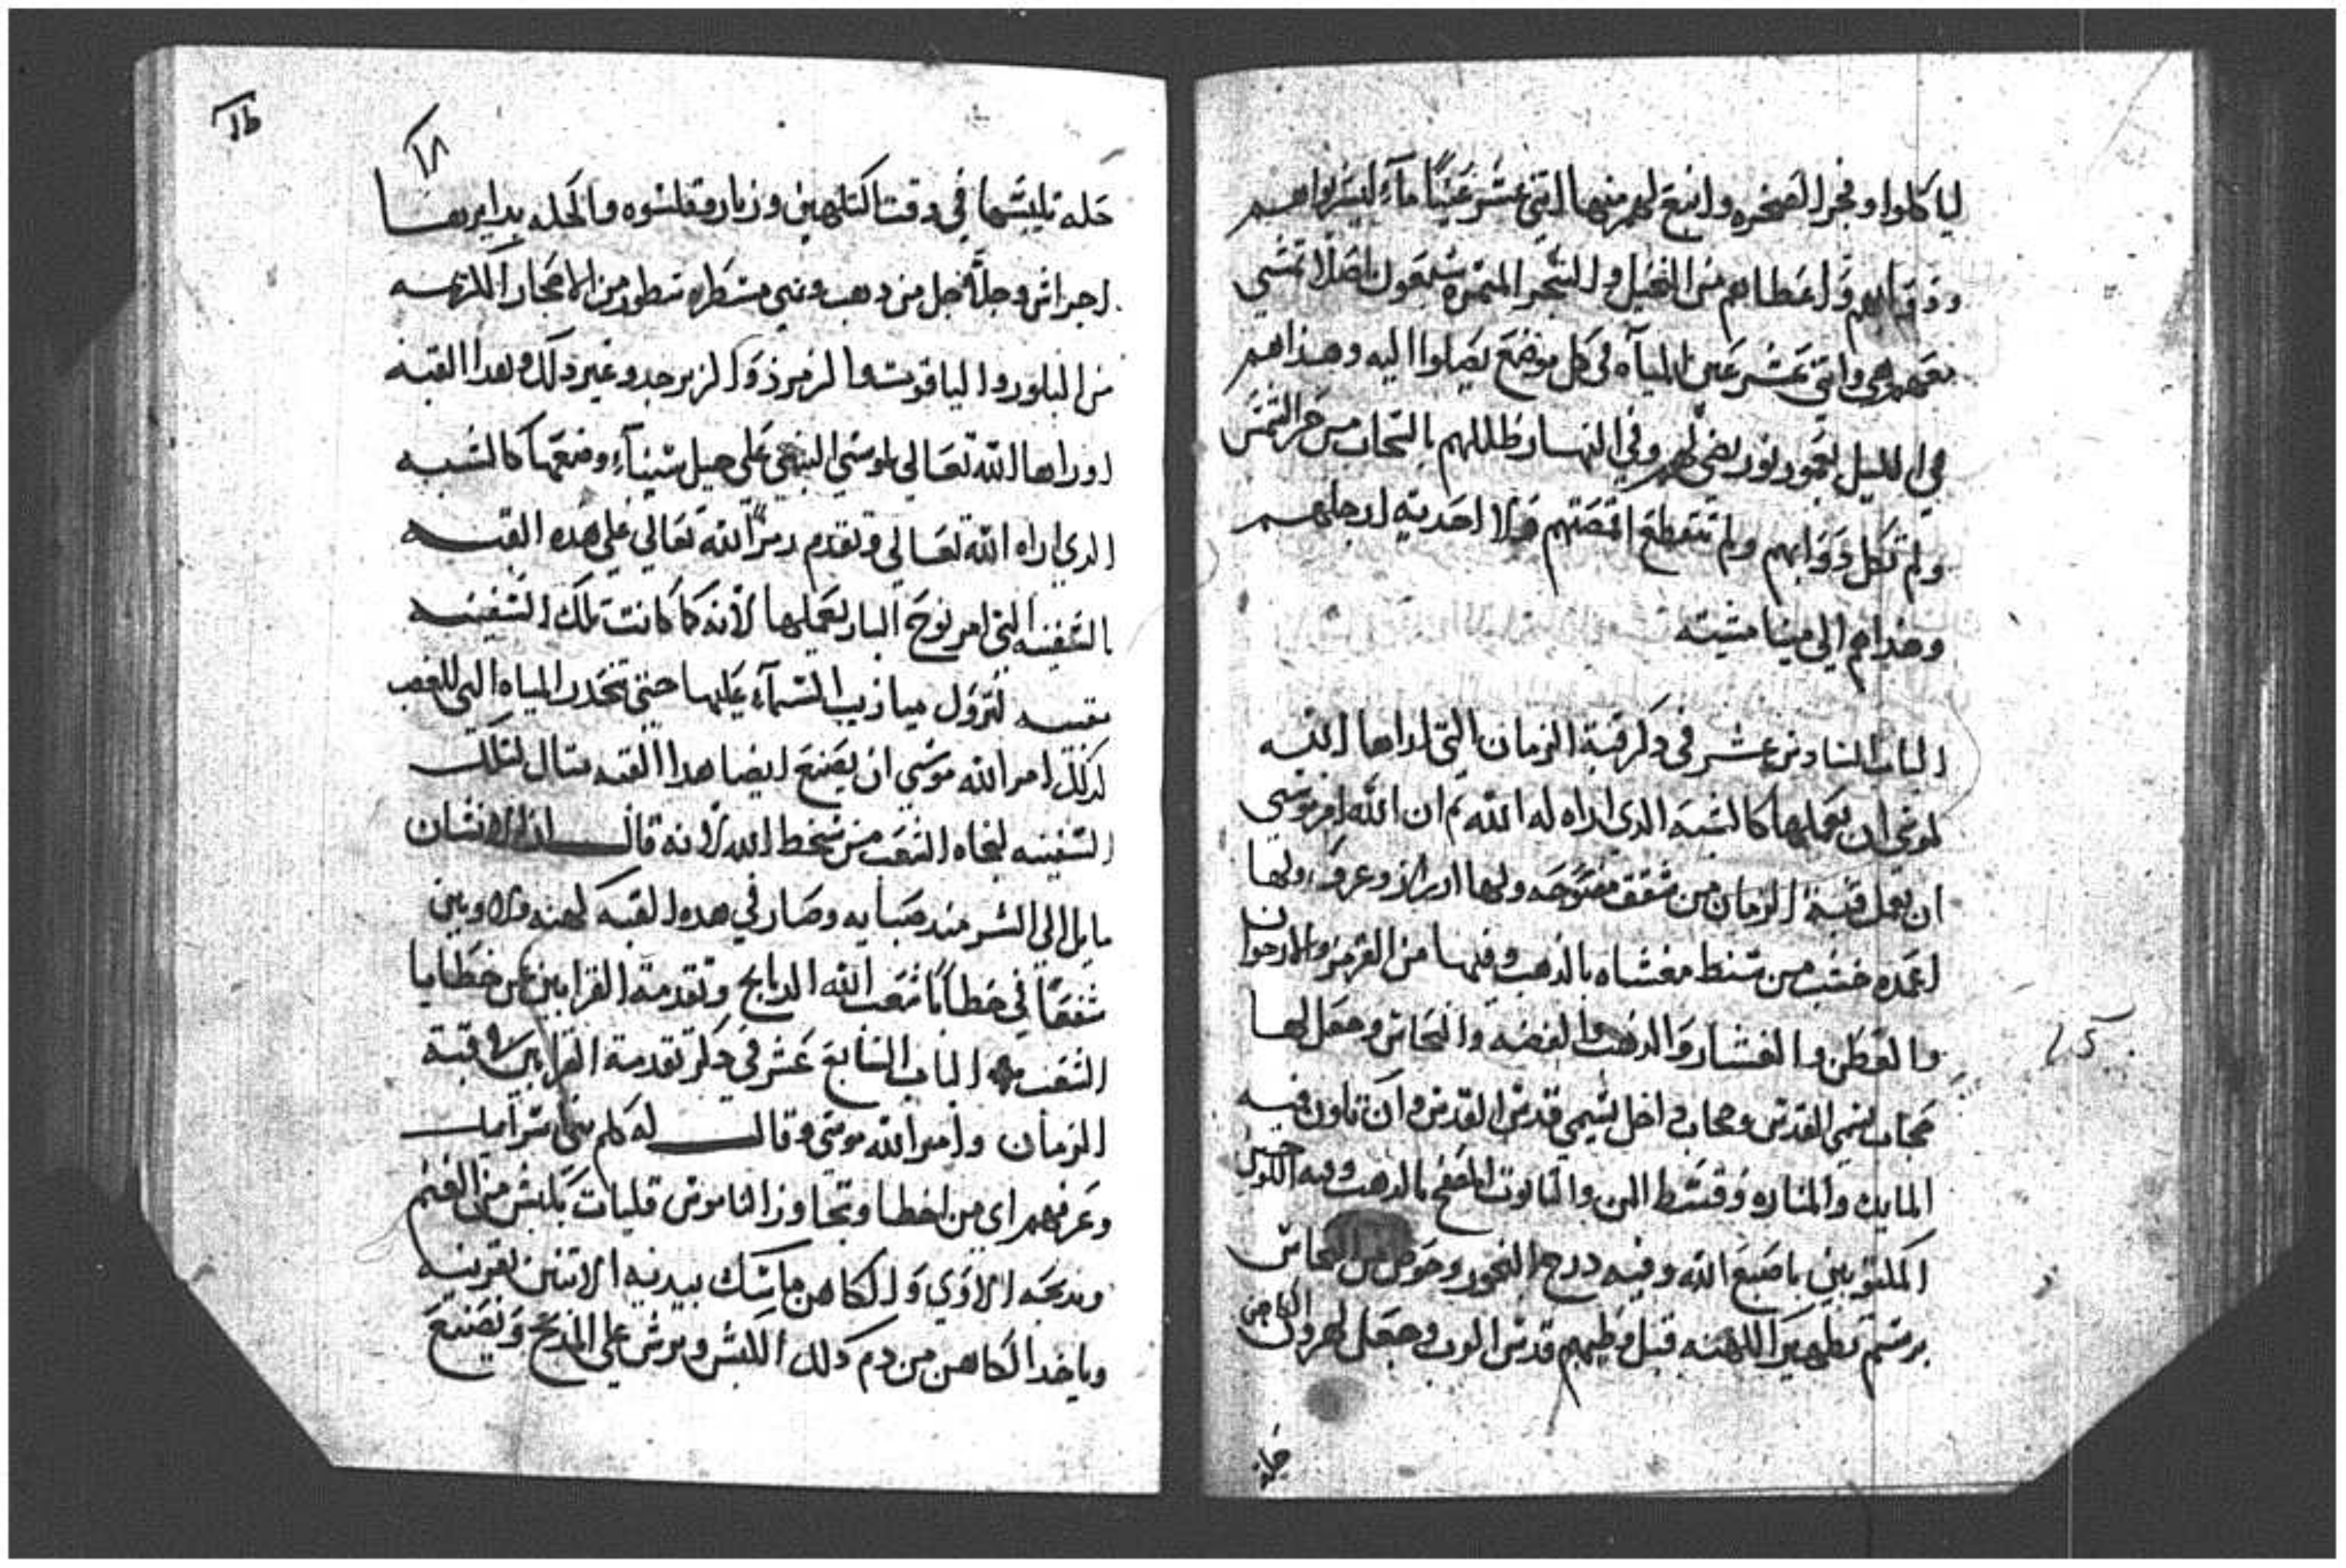 لياكلوا وفجر الصخره وانبع لهم منها اتني عشر عينًا مآء ليسربوا هم
ودوابهم واعطاهم من النخيل والشجر المتمره سبعون اصلا تمشي
معهم هي واتني عشر عين المياه في كل موضع يصلوا اليه وهداهم
في الليل بعمود نور يضي لهم وفي النهار ظللهم بالسحاب من حر الشمس
ولم تكل دوابهم ولم تتقطع اقمصتهم ولا احديه ارجلهم
وهداهم الي مينا مشيته
الباب السادس عشر في دكر قبة الزمان التي اراها الله
لموسي ان يعملها كالشبه الدي اراه له الله تم ان الله امر موسي
ان يعمل قبة الزمان من شقق مفتوحه ولها ازرار وعروه ولها
اعمده خشب من سنط مغشاه بالدهب وفيها من القرمز والارجوان
والقطن والغشار والدهب والفضه والنحاس وجعل لها
حجاب يسمي القدس وحجاب داخل يسمي قدس القدس وان تاون فيه
المايده والمناره وقسط المن والتابوت المصفح بالدهب وبه اللوحين
المكتوبين باصبع الله وفيه درج البخور وحوض من النحاس
برسم تطهير الكهنه قبل وطيهم قدس الرب وجعل لهرون الكاهن
حلة
١٨
حله تلبسها في وقت الكهين وزنار وقلنسوه والحله بدايرها
اجراس وجلاجل من دهب وتبي مسطره سطور من الاحجار الكريمه
من البلور والياقوت والزمرد والزبرجد وغير دلك وهدا القبه
اوراها الله تعالي لموسي النبي علي جبل سيناء وضعها كالشبه
الدي اراه الله تعالي وتقدم رمز الله تعالي علي هده القبه
بالسفينه التي امر نوح البار بعملها لانه كما كانت تلك السفينه
مقببه لنزول ميازيب السماء عليها حتي تنحدر المياه التي للغضب
كدلك امر الله موسي ان يصنع ايضا هدا القبه متال لتلك
السفينه لنجاه الشعب من سخط الله لانه قال ان الانسان
مايل الي الشر مند صبايه وصار في هده القبه كهنه ولاويين
شفقًا في خطايا شعب الله الدبايح وتقدمة القرابين عن خطايا
الشعب الباب السابع عشر في دكر تقدمة القرابين في قبة
الزمان وامر الله موسي وقال له كلم بني اسراييل
وعرفهم اي من اخطا وتجاوز الناموس فليات بكبش من الغنم
ويدبحه اللاوي والكاهن ماسك بيديه الاتنين بقرنيه
وياخد الكاهن من دم دلك الكبش ويرش علي المدبح ويصنع